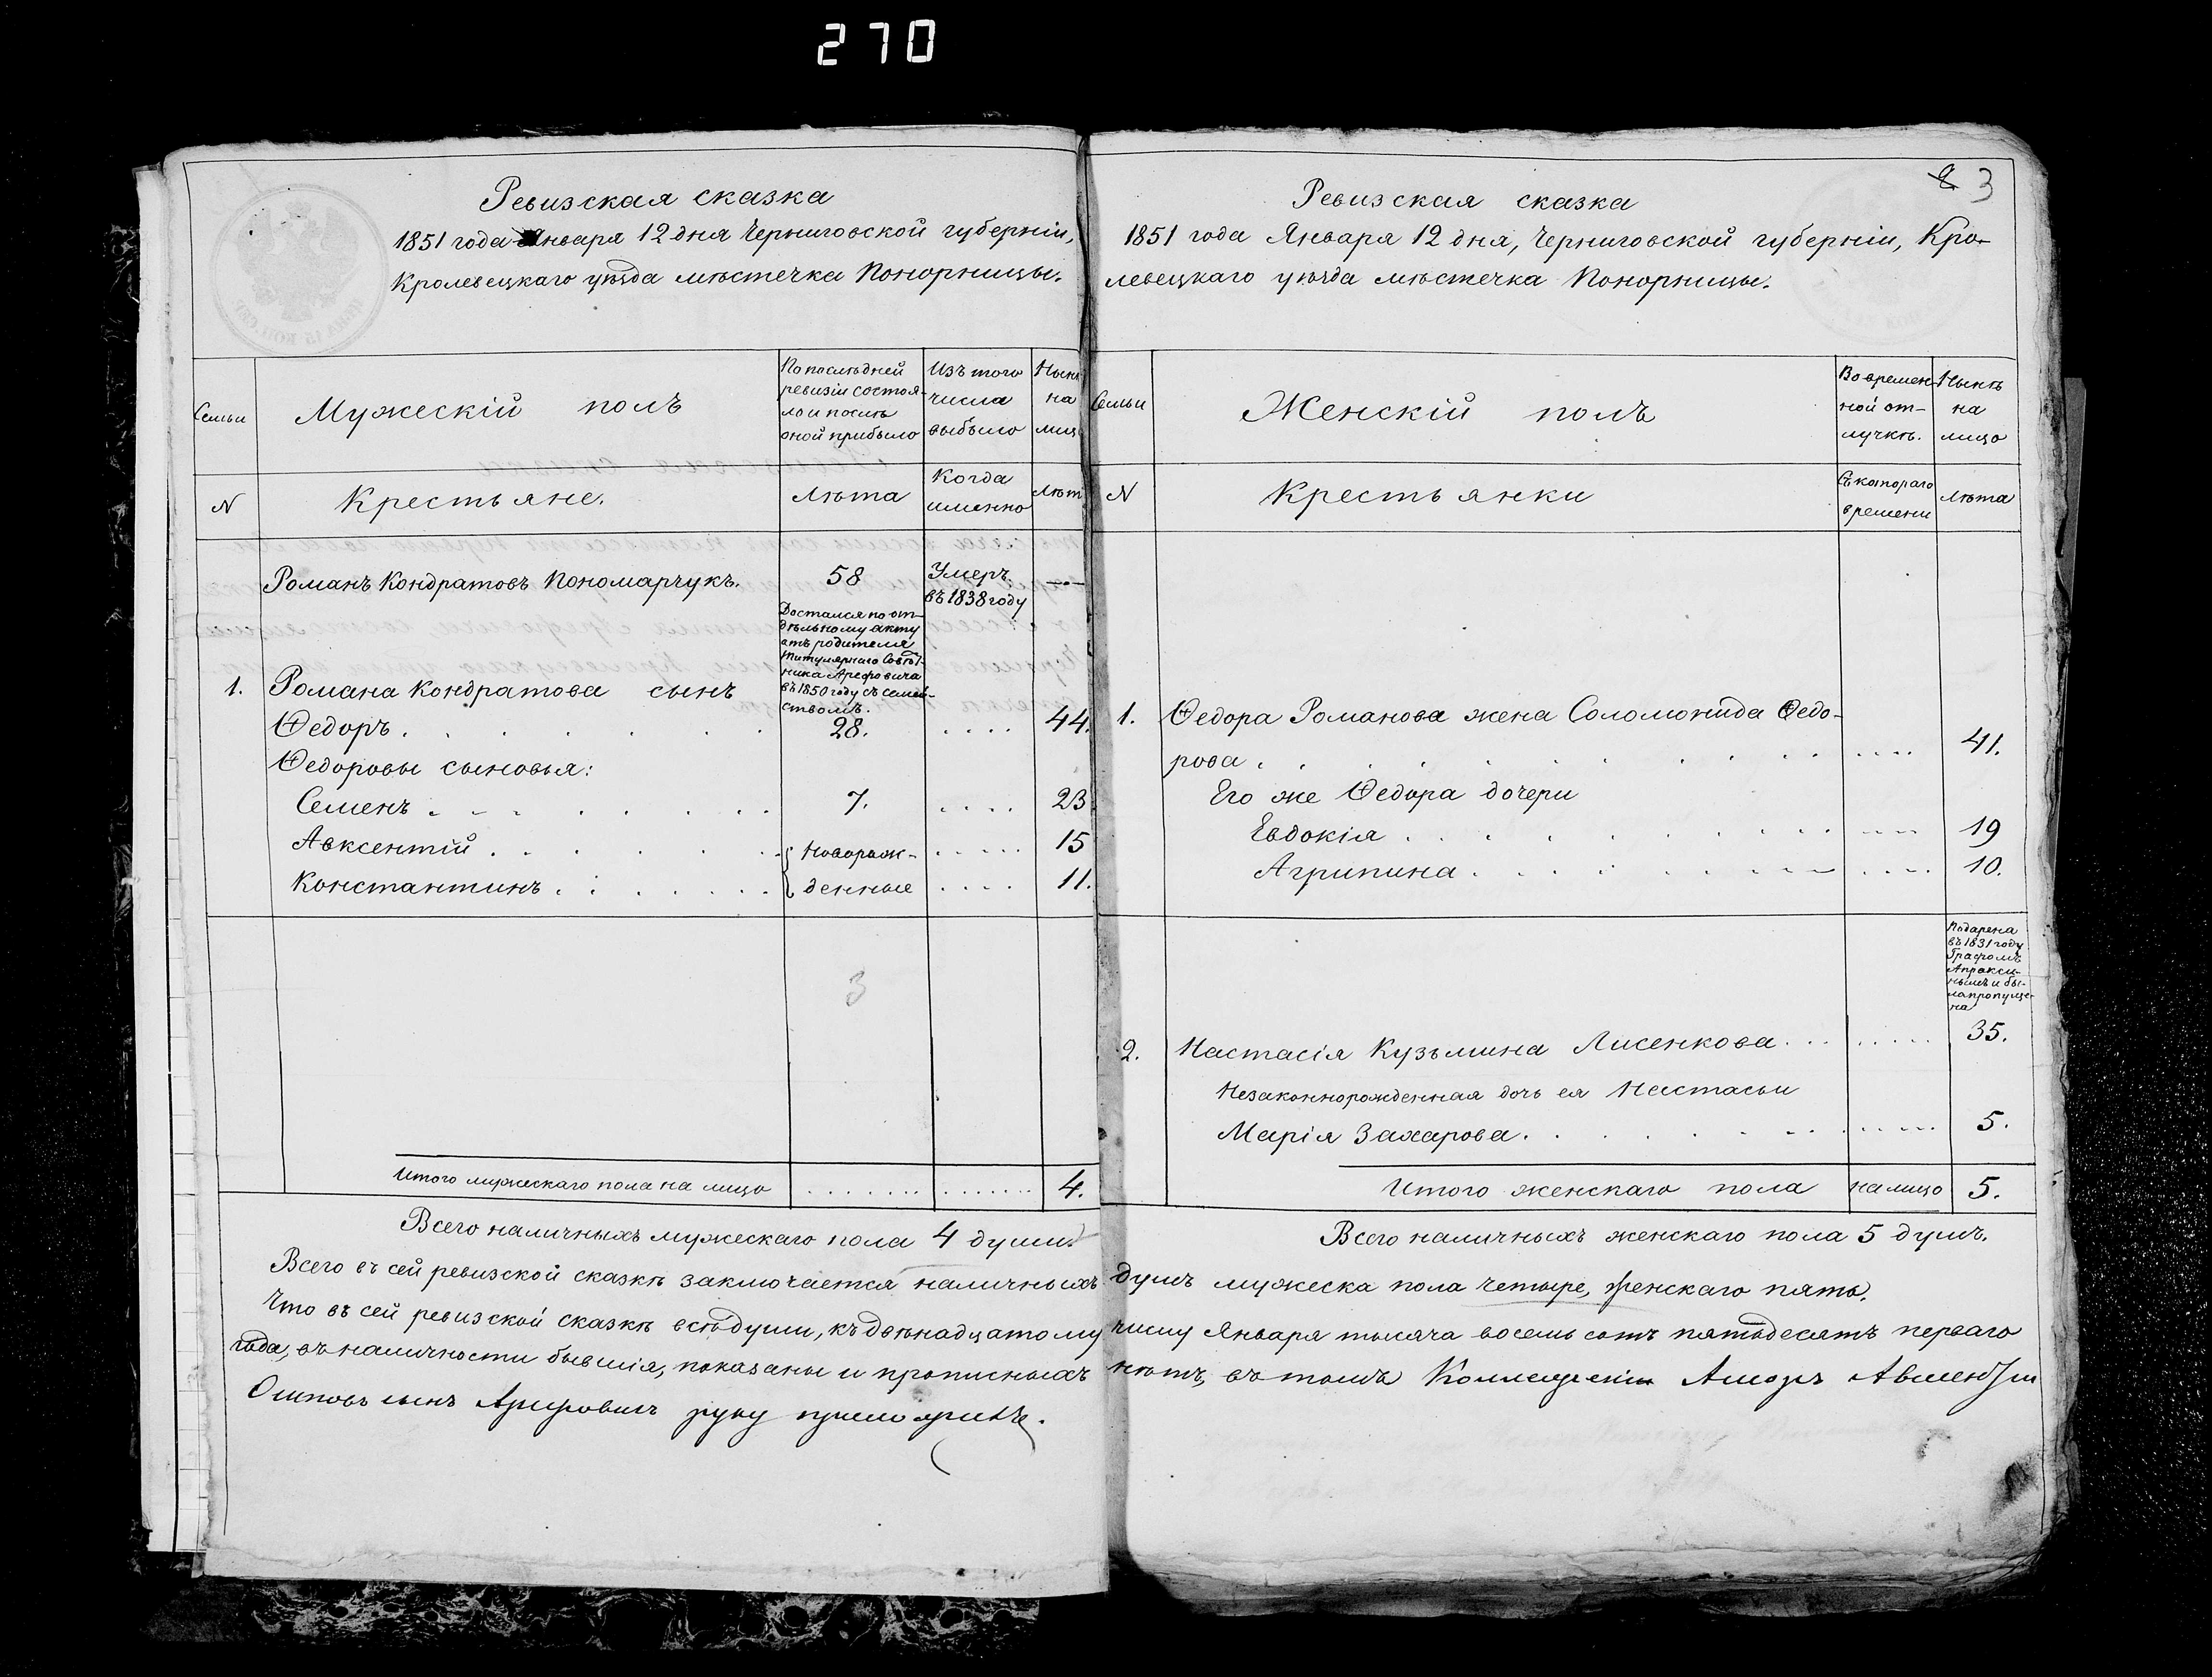 270
Ревизская сказка
1851 года Января 12 дня Черниговской губерніи,
Кролевецкаго уѣзда мѣстечка Понорницы.
Семьи
Мужескій полъ
По послѣдней
ревизіи состоя-
ло и послѣ
оной прибыло
Изъ того
числа
выбыло
Нынѣ
на
лицо
N
Крестьяне.
Лѣта
Когда
именно
Лѣта
Романъ Кондратовъ Пономарчукъ.
58
Умеръ
въ 1838 году
Достался по от-
дѣльному акту
отъ родителя
Титулярнаго Совѣт-
ника Арефовича
въ 1850 году съ семей-
ствомъ.
1. Романа Кондратова сынъ
Ѳедоръ
28.
44.
Ѳедоровы сыновья:
Семенъ
7.
23
Авксентій
Новорож-
15
Константинъ
денные
11.
3
Итого мужескаго пола на лицо
4.
Всего наличныхъ мужескаго пола 4 души.
8 3
Ревизская сказка
1851 года Января 12 дня, Черниговской губерніи, Кро-
левецкаго уѣзда мѣстечка Понорницы.
Семьи
Женскій полъ
Во времен-
ной от-
лучкѣ.
Нынѣ
на
лицо
N
Крестьянки
Съ котораго
времени
Лѣта
1. Ѳедора Романова жена Соломонида Ѳедо-
рова
41.
Его же Ѳедора дочери
Евдокія
19
Агрипина
10.
Подарена
въ 1831 году
Графомъ
Апракси-
нымъ и бы-
ла пропуще-
на
2. Настасія Кузьмина Лисенкова
35.
Незаконнорожденная дочь ея Настасьи
Марія Захарова
5.
Итого женскаго пола на лицо 5.
Всего наличныхъ женскаго пола 5 душъ.
Всего въ сей ревизской сказкѣ заключается наличныхъ душъ мужеска пола четыре, женскаго пять.
Что въ сей ревизской сказкѣ всѣ души, къ двѣнадцатому числу Января тысяча восемь сотъ пятьдесятъ перваго
года, въ наличности бывшія, показаны и прописныхъ нѣтъ, въ томъ
Осиповъ сынъ Арефовичъ руку приложилъ.